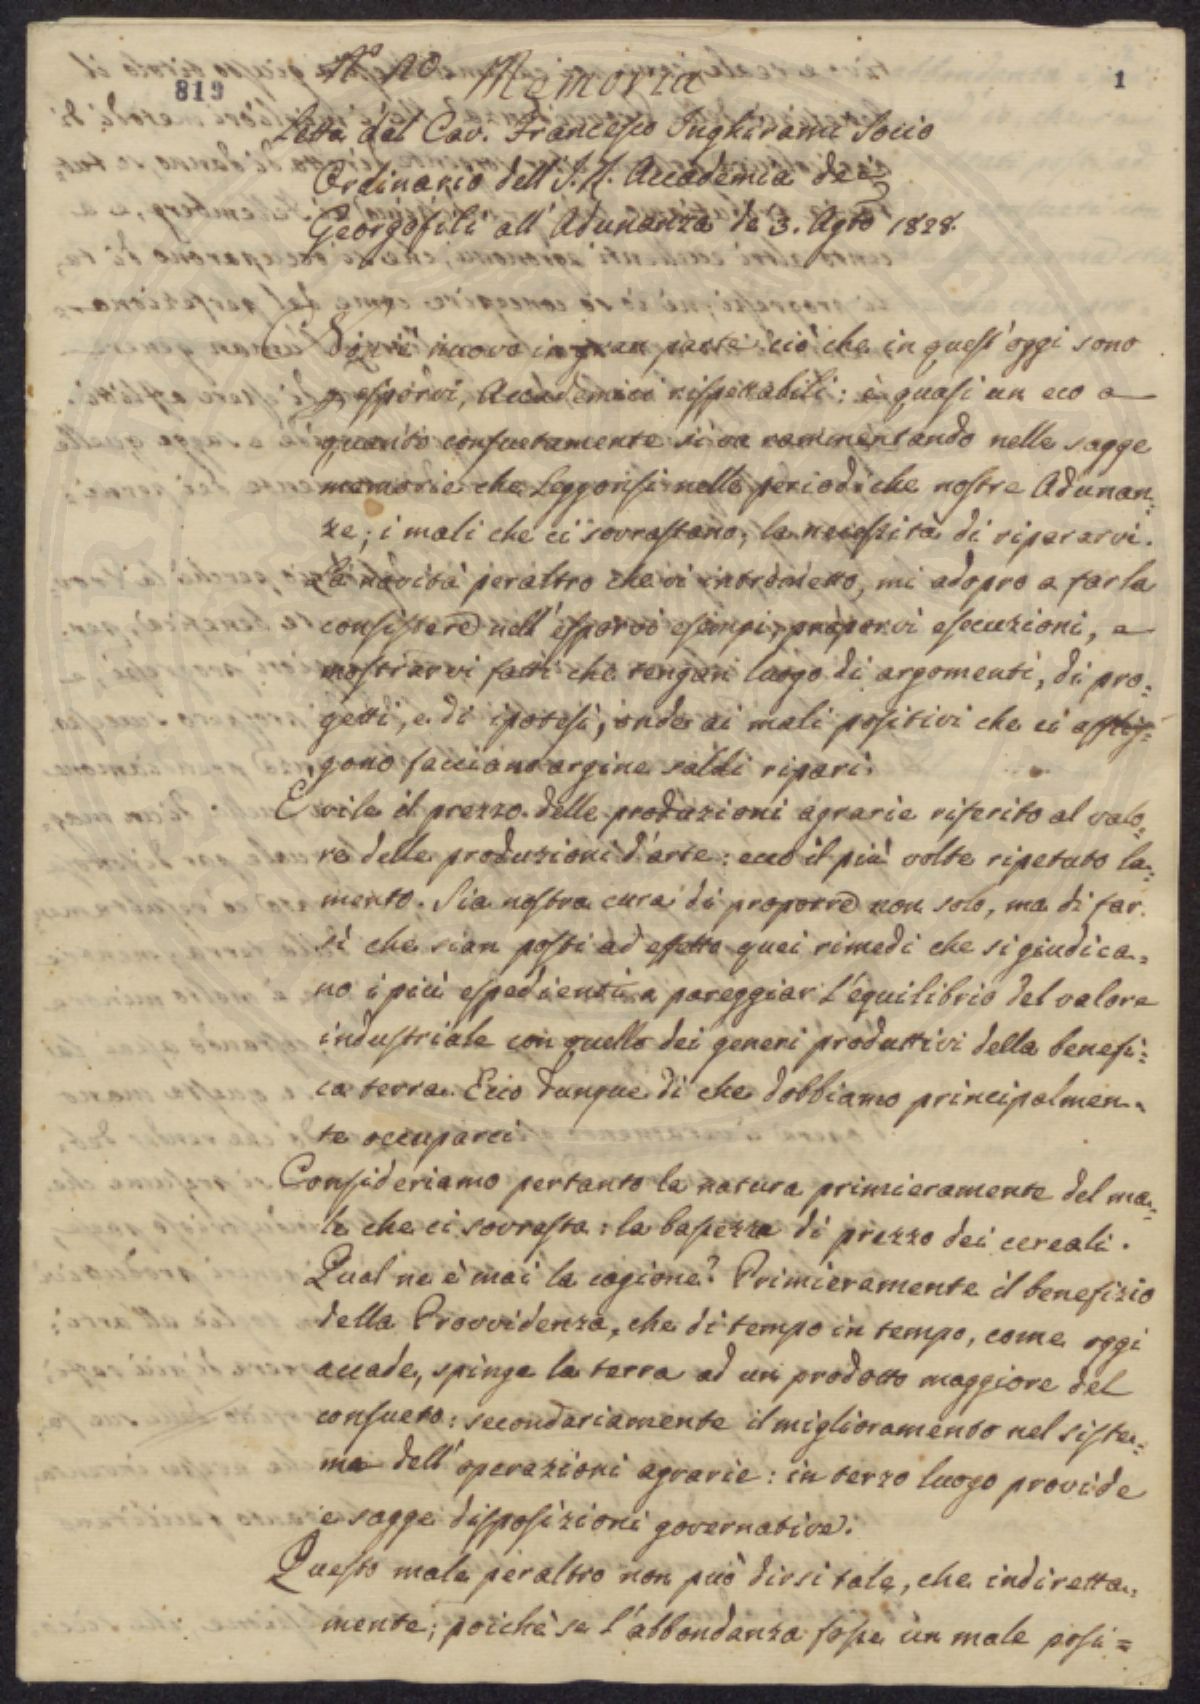 N.º 40 Memoria
819
1
Letta dal Cav. Francesco Inghirami Socio
Ordinario dell' I. R. Accademia dei
Georgofili all' Adunanza de 3. Agto 1828.
nuovo in gran parte ciò che in quest'oggi sono
esporvi, Accademici rispettabili: è quasi un eco a
quanto consuetamente si va rammentando nelle sagge
memorie che leggonsi nelle periodiche nostre Adunan=
ze; i mali che ci sovrastano, la necessità di ripararvi.
La novità peraltro che vi intrometto, mi adopro a farla
consistere nell'esporvi esempi, proporvi esecuzioni, e
mostrarvi fatti che tengan luogo di argomenti, di pro=
getti, e di ipotesi, onde ai mali positivi che ci afflig=
gono facciano argine saldi ripari.
È vile il prezzo delle produzioni agrarie riferito al valo=
re delle produzioni d'arte: ecco il più volte ripetuto la=
mento. Sia nostra cura di proporre non solo, ma di far
sì che sian posti ad effetto quei rimedi che si giudica=
no i più espedienti a pareggiar l'equilibrio del valore
industriale con quello dei generi produttivi della benefi=
ca terra. Ecco dunque di che dobbiamo principalmen=
te occuparci
Consideriamo pertanto la natura primieramente del ma=
le che ci sovrasta: la bassezza di prezzo dei cereali.
Qual ne è mai la cagione? Primieramente il benefizio
della Provvidenza, che di tempo in tempo, come oggi
accade, spinge la terra ad un prodotto maggiore del
consueto: secondariamente il miglioramento nel siste=
ma dell'operazioni agrarie: in terzo luogo provide
e sagge disposizioni governative.
Questo male peraltro non può dirsi tale, che indiretta=
mente; poichè se l'abbondanza fosse un male posi=